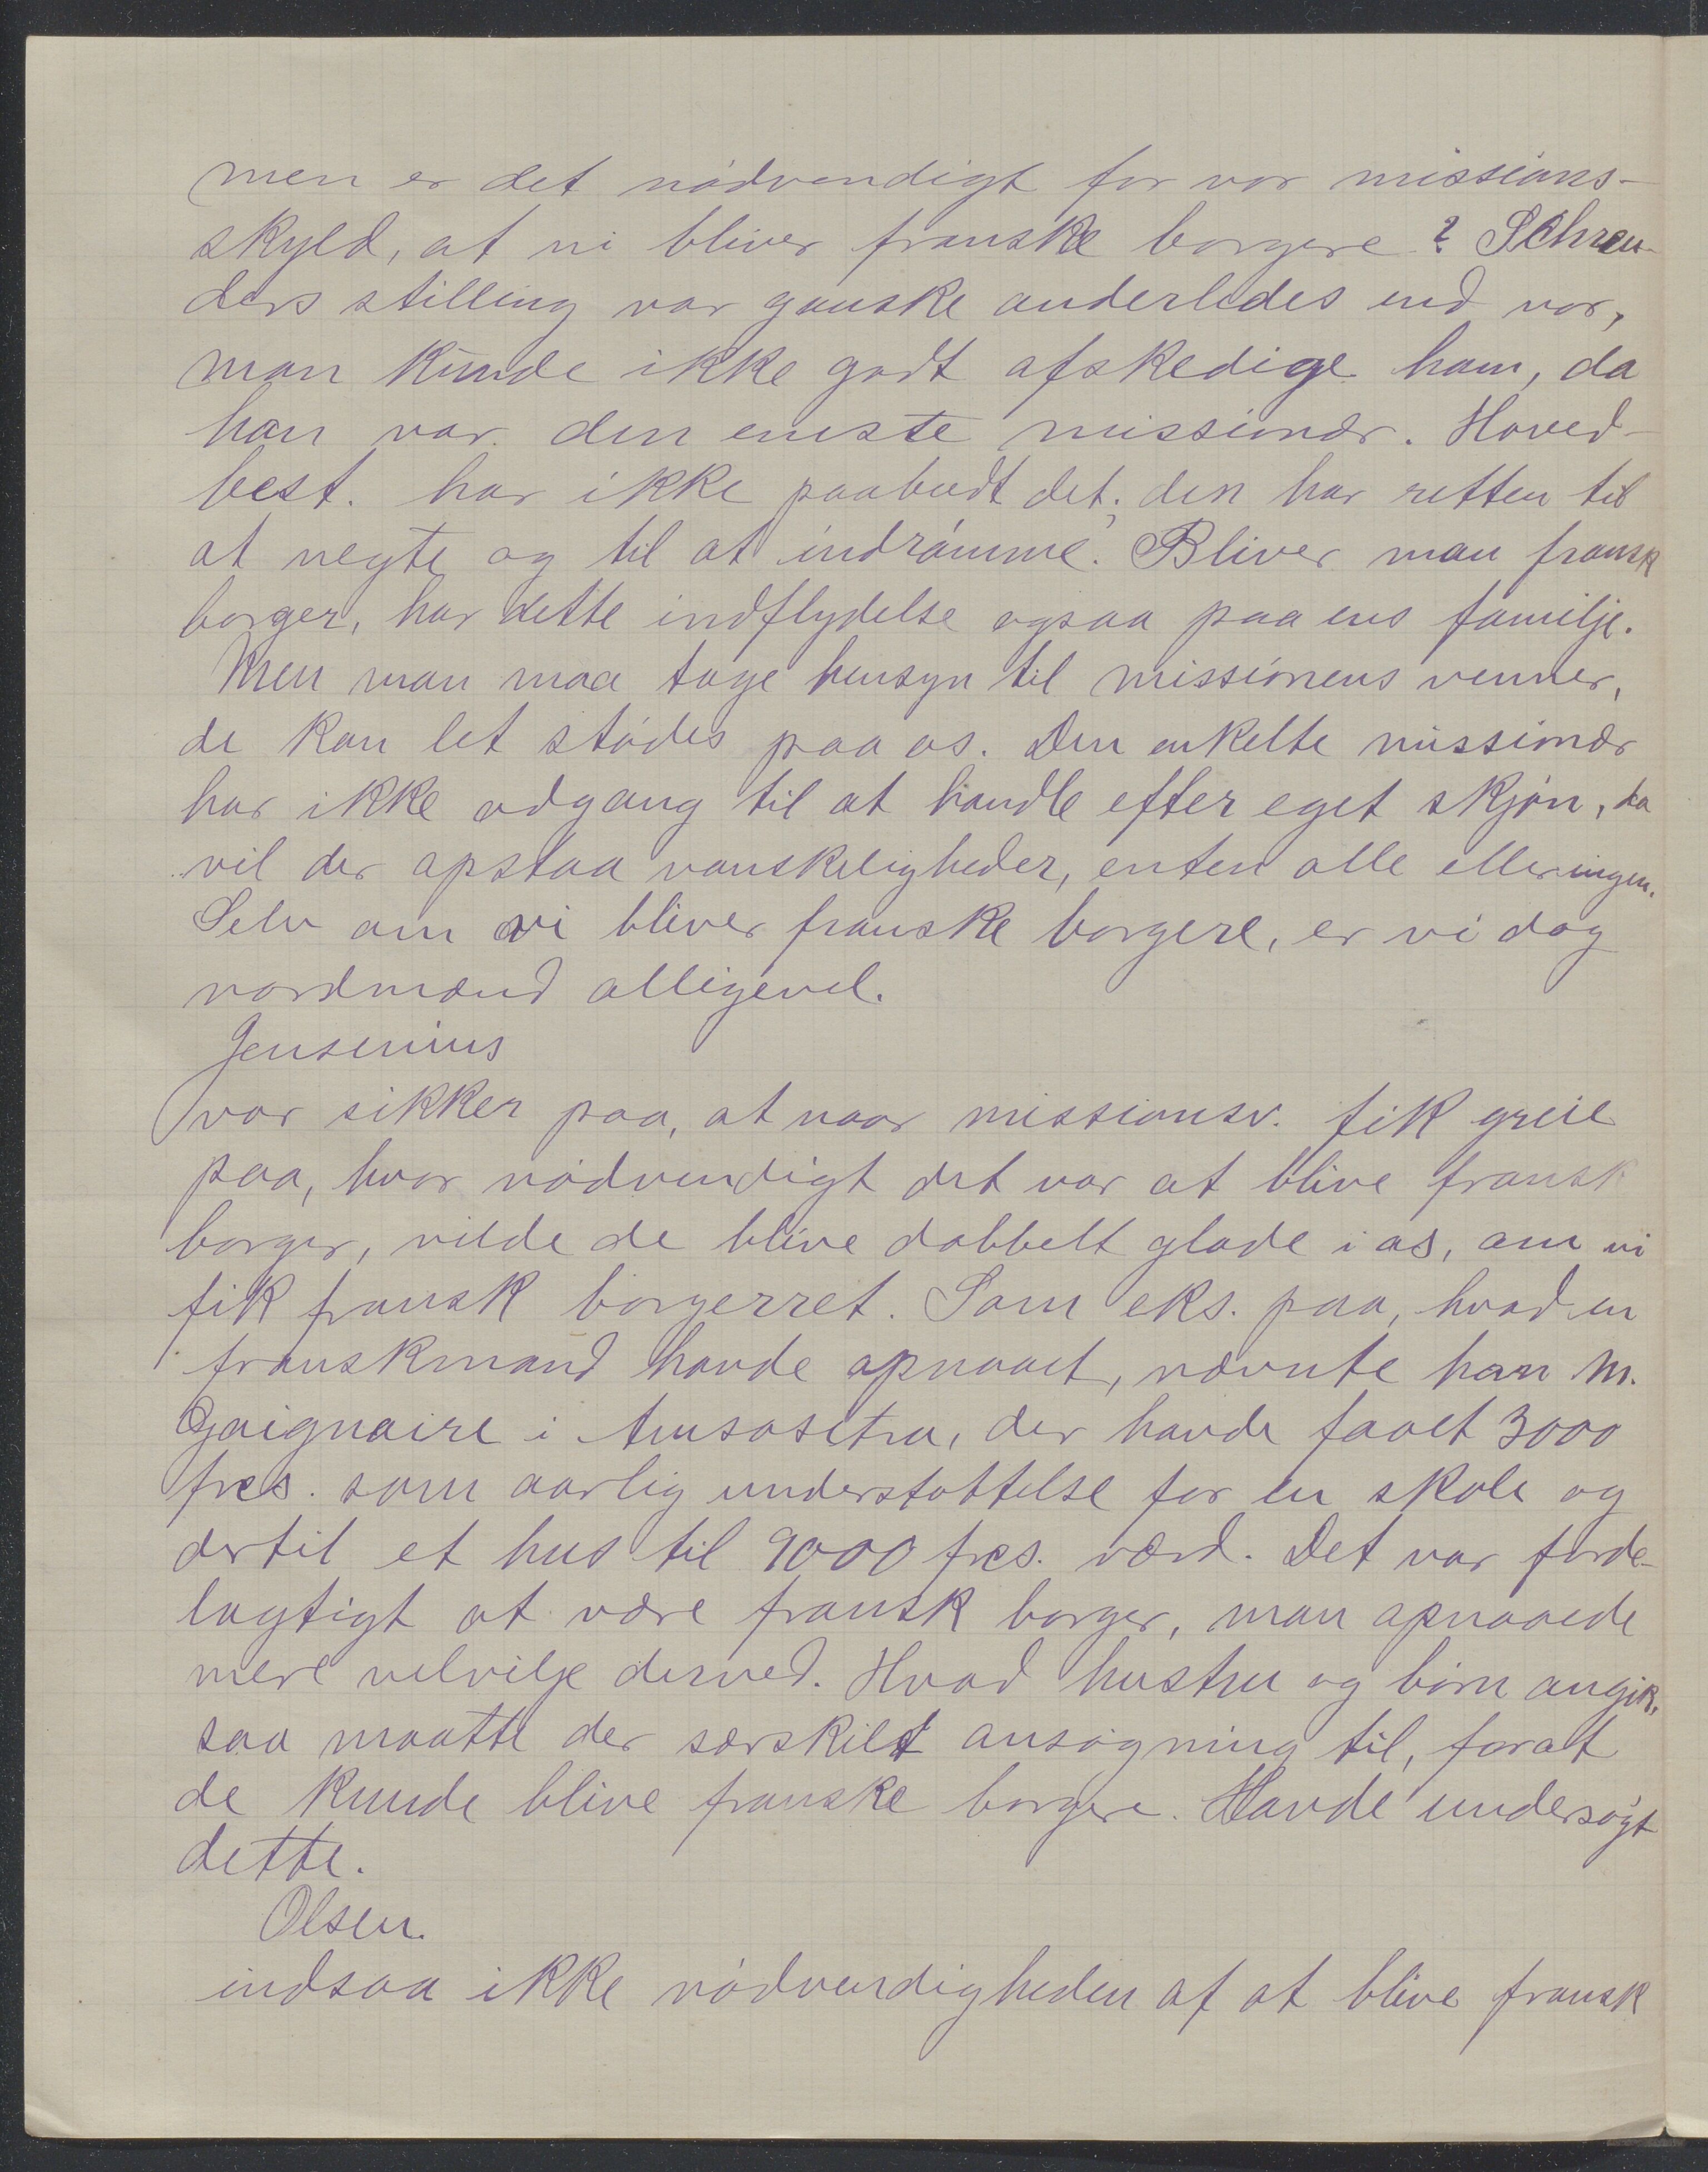 men er det nødvendigt for vor missions-
skyld, at vi bliver franske borgere? Schreu-
ders stilling var ganske anderledes end vor,
man kunde ikke godt afskedige ham, da
han var den eneste missionær. Hoved-
best. har ikke paabudt det; den har retten til
at negte og til at indrømme. Bliver man fransk
borger, har dette indflydelse ogsaa paa ens familje.
Men man maa tage hensyn til missionens venner,
de kan let stødes paa os. Den enkelte missionær
har ikke adgang til at handle efter eget skjøn, da
vil der opstaa vanskeligheder, enten alle eller ingen.
Selv om vi bliver franske borgere, er vi dog
nordmænd alligevel.
Jensenius
var sikker paa, at naar missionsv. fik greie
paa, hvor nødvendigt det var at blive fransk
borger, vilde de blive dobbelt glade i os, om vi
fik fransk borgerret. Som eks. paa, hvad en
franskmand havde opnaaet, nævnte han M.
Gaignaire i Amsosetra, der havde faaet 3000
frcs. som aarlig understøttelse for en skole og
dertil et hus til 9000 frcs. værd. Det var forde-
lagtigt at være fransk borger, man opnaaede
mere velvilje derved. Hvad hustru og børn angik,
saa maatte der særskilt ansøgning til, forat
de kunde blive franske borgere. Havde undersøgt
dette.
Olsen.
indsaa ikke nødvendigheden af at blive fransk